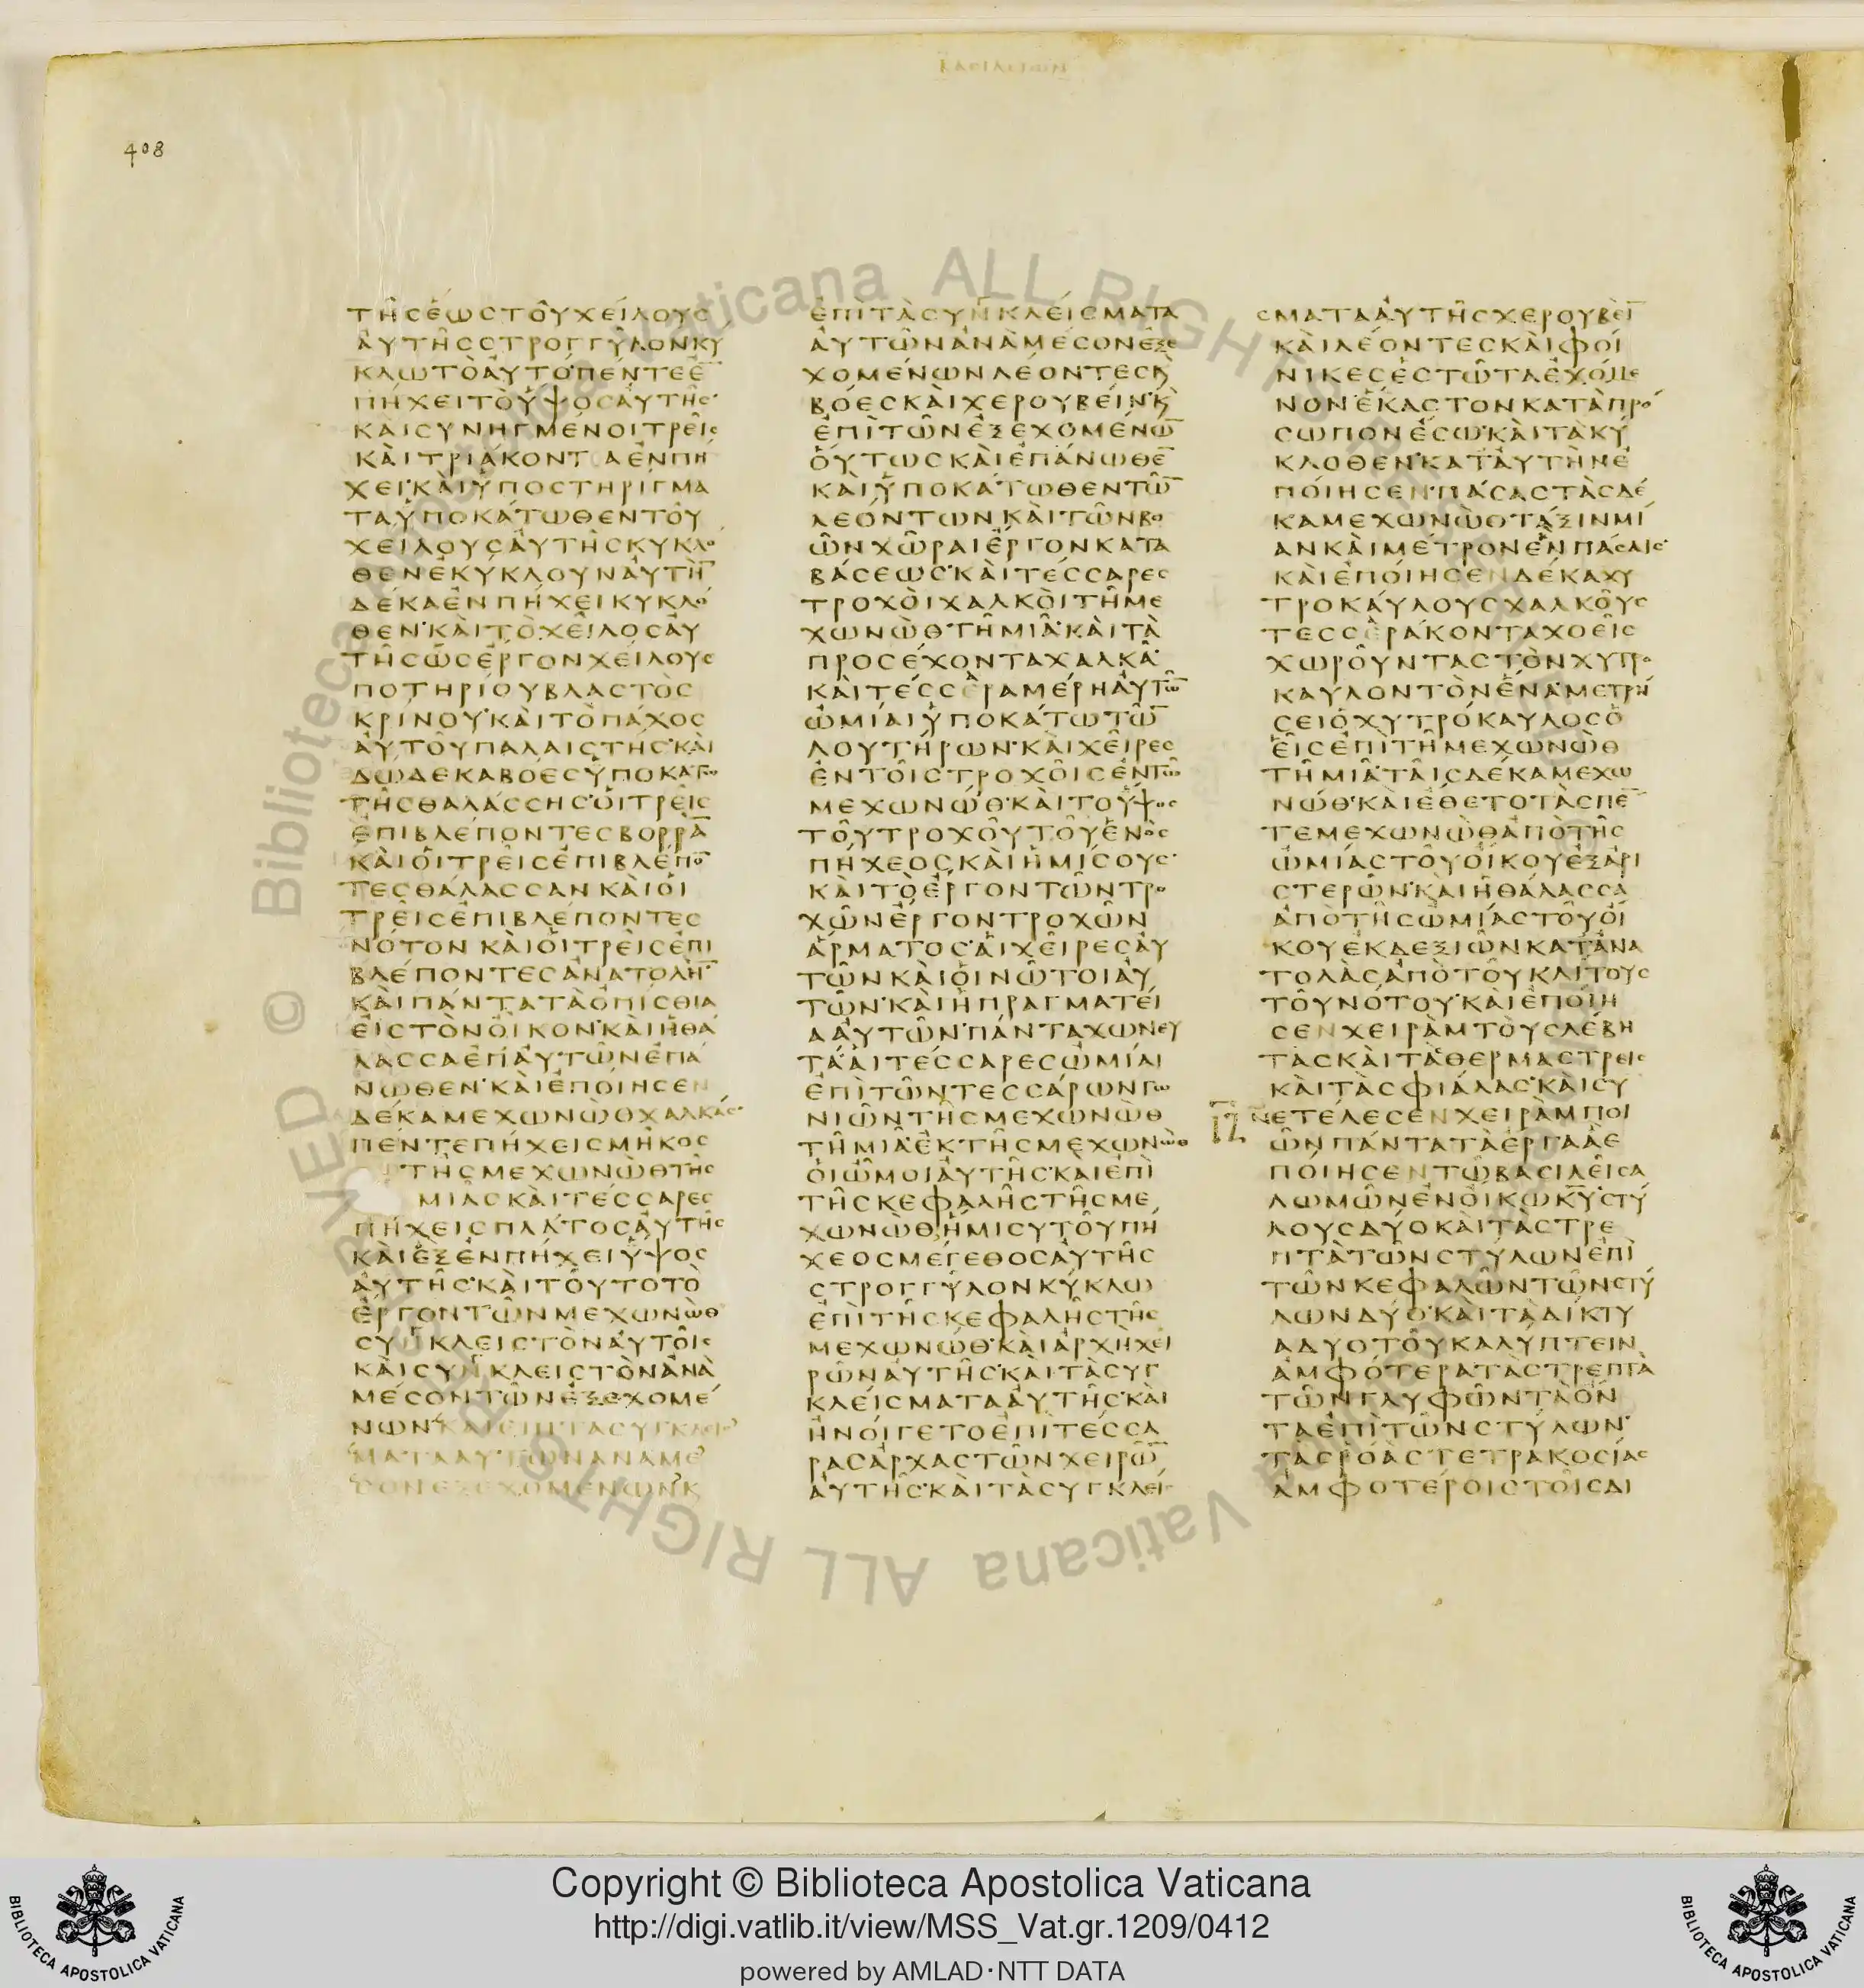 ΒΑΣΙΛΕΙΩΝ
408
ΤΗ͂ϹἝΩϹΤΟΥ͂ΧΕΊΛΟΥϹ
ΑΥ̓ΤΗ͂ϹϹΤΡΟΓΓΎΛΟΝΚΥ
ΚΛΩΤῸΑΥ̓ΤΌ·ΠΕΝΤΕΕ̅
ΠΉΧΕΙΤῸὝΨΟϹΑΥ̓ΤΗ͂Ϲ·
ΚΑΙϹΥΝΗΓΜΈΝΟΙΤΡΕΙ͂Ϲ
ΚΑῚΤΡΙΆΚΟΝΤΑἘΝΠΗ
ΧΕΙ·ΚΑῚὙΠΟϹΤΗΡΙΓΜΑ
ΤΑὙΠΟΚΆΤΩΘΕΝΤΟΥ͂
ΧΕΊΛΟΥϹΑΥ̓ΤΗ͂ϹΚΥΚΛΟ
ΘΕΝἘΚΎΚΛΟΥΝΑΥ̓ΤΗ̅
ΔΈΚΑἘΝΠΉΧΕΙΚΥΚΛΌ
ΘΕΝ·ΚΑῚΤῸΧΕΙ͂ΛΟϹΑΥ̓
ΤΗ͂ϹὩϹἜΡΓΟΝΧΕΊΛΟΥϹ
ΠΟΤΗΡΊΟΥΒΛΑϹΤῸϹ
ΚΡΊΝΟΥ·ΚΑῚΤῸΠΆΧΟϹ
ΑΥ̓ΤΟΥ͂ΠΑΛΑΙϹΤΉϹ·ΚΑῚ
ΔΏΔΕΚΑΒΌΕϹὙΠΟΚΑΤΩ
ΤΗ͂ϹΘΑΛΆϹϹΗϹ·ΟἹΤΡΕΙ͂Ϲ
ἘΠΙΒΛΈΠΟΝΤΕϹΒΟΡΡΑ̅
ΚΑῚΟἹΤΡΕΙ͂ϹἘΠΙΒΛΈΠΟ̅
ΤΕϹΘΆΛΑϹϹΑΝΚΑῚΟἹ
ΤΡΕΙ͂ϹἘΠΙΒΛΈΠΟΝΤΕϹ
ΝΌΤΟΝΚΑῚΟἹΤΡΕΙ͂ϹἘΠΙ
ΒΛΈΠΟΝΤΕϹἈΝΑΤΟΛΗ̅
ΚΑῚΠΆΝΤΑΤᾺὈΠΊϹΘΙΑ
ΕἸϹΤῸΝΟἾΚΟΝ·ΚΑῚἩΘΆ
ΛΑϹϹΑἘΠΑΥ̓ΤΩ͂ΝἘΠΆ
ΝΩΘΕΝ·ΚΑῚἘΠΟΊΗϹΕΝ
ΔΈΚΑΜΕΧΩΝῺΘΧΑΛΚΑ͂Ϲ·
ΠΈΝΤΕΠΉΧΕΙϹΜΗ͂ΚΟϹ
ΤΗ͂ϹΜΕΧΩΝῺΘΤΗ͂Ϲ
ΜΙΑ͂ϹΚΑῚΤΈϹϹΑΡΕϹ
ΠΉΧΕΙϹΠΛΆΤΟϹΑΥ̓ΤΗ͂Ϲ
ΚΑῚἝΞἘΝΠΉΧΕΙὝΨΟϹ
ΑΥ̓ΤΗ͂Ϲ·ΚΑῚΤΟΥ͂ΤΟΤῸ
ἜΡΓΟΝΤΩ͂ΝΜΕΧΩΝῺΘ
ϹΥΓΚΛΕΙϹΤῸΝΑΥ̓ΤΟΙ͂Ϲ
ΚΑῚϹΥΓΚΛΕΙϹΤῸΝἈΝᾺ
ΜΈϹΟΝΤΩ͂ΝἘΞΕΧΟΜΈ
ΝΩΝ·ΚΑΙΕΠΙΤΑϹΥΓΚΛΕΙϹ
ΜΑΤΑΑΥΤΩΝΑΝΑΜΕ
ϹΟΝΕΞΕΧΟΜΕΝΩΝΚ
ἘΠῚΤᾺϹΥΓΚΛΕΊϹΜΑΤΑ
ΑΥ̓ΤΩ͂ΝἈΝᾺΜΈϹΟΝἘΞΕ
ΧΟΜΈΝΩΝΛΈΟΝΤΕϹΚ
ΒΌΕϹΚΑῚΧΕΡΟΥΒΕΊΝ·Κ
ἘΠῚΤΩ͂ΝἘΞΕΧΟΜΈΝΩ̅
ΟὝΤΩϹΚΑῚἘΠΆΝΩΘΕ̅
ΚΑῚὙΠΟΚΆΤΩΘΕΝΤΩ̅
ΛΕΌΝΤΩΝΚΑῚΤΩ͂ΝΒΟ
Ω͂ΝΧΩ͂ΡΑΙἜΡΓΟΝΚΑΤΑ
ΒΆϹΕΩϹ·ΚΑῚΤΈϹϹΑΡΕϹ
ΤΡΟΧΟῚΧΑΛΚΟῚΤΗ͂ΜΕ
ΧΩΝῺΘΤΗ͂ΜΙΑ͂·ΚΑῚΤᾺ
ΠΡΟϹΈΧΟΝΤΑΧΑΛΚΑ͂·
ΚΑῚΤΈϹϹΕΡΑΜΈΡΗΑΥ̓ΤΩ̅
ὨΜΊΑΙὙΠΟΚΆΤΩΤΩ̅
ΛΟΥΤΉΡΩΝ·ΚΑῚΧΕΙ͂ΡΕϹ
ἘΝΤΟΙ͂ϹΤΡΟΧΟΙ͂ϹἘΝΤΩ͂
ΜΕΧΩΝΏΘ·ΚΑῚΤΟὝΨΟϹ
ΤΟΥ͂ΤΡΟΧΟΥ͂ΤΟΥ͂ἙΝῸϹ
ΠΉΧΕΟϹΚΑῚἩΜΊϹΟΥϹ·
ΚΑῚΤῸἜΡΓΟΝΤΩ͂ΝΤΡΟ
ΧΩ͂ΝἜΡΓΟΝΤΡΟΧΩ͂Ν
ἍΡΜΑΤΟϹ·ΑἹΧΕΙ͂ΡΕϹΑΥ̓
ΤΩ͂ΝΚΑῚΟἹΝΩ͂ΤΟΙΑΥ̓
ΤΩ͂Ν·ΚΑῚἩΠΡΑΓΜΑΤΕΊ
ΑΑΥ̓ΤΩ͂Ν·ΠΆΝΤΑΧΩΝΕΥ
ΤΆ·ΑἹΤΈϹϹΑΡΕϹὨΜΊΑΙ
ἘΠῚΤΩ͂ΝΤΕϹϹΆΡΩΝΓΩ
ΝΙΩ͂ΝΤΗ͂ϹΜΕΧΩΝῺΘ
ΤΗ͂ΜΙΑ͂·ἘΚΤΗ͂ϹΜΕΧΩΝῺΘ
ΟἹὮΜΟΙΑΥ̓ΤΗ͂Ϲ·ΚΑΙἘΠῚ
ΤΗ͂ϹΚΕΦΑΛΗ͂ϹΤΗ͂ϹΜΕ
ΧΩΝῺΘἭΜΙϹΥΤΟΥ͂ΠΗ
ΧΕΟϹΜΈΓΕΘΟϹΑΥ̓ΤΗ͂Ϲ
ϹΤΡΟΓΓΎΛΟΝΚΎΚΛΩ
ἘΠῚΤΗ͂ϹΚΕΦΑΛΗ͂ϹΤΗ͂Ϲ
ΜΕΧΩΝΏΘ·ΚΑῚἈΡΧῊΧΕΙ
ΡΩ͂ΝΑΥ̓ΤΗ͂Ϲ·ΚΑῚΤᾺϹΥΓ
ΚΛΕΊϹΜΑΤΑΑΥ̓ΤΗ͂Ϲ·ΚΑῚ
ἨΝΟΊΓΕΤΟἘΠῚΤΈϹϹΑ
ΡΑϹἈΡΧᾺϹΤΩ͂ΝΧΕΙΡΩ̅
ΑΥ̓ΤΗ͂Ϲ·ΚΑῚΤᾺϹΥΓΚΛΕΙ
ϹΜΑΤΑΑΥ̓ΤΗ͂ϹΧΕΡΟΥΒΕΙ̅
ΚΑῚΛΈΟΝΤΕϹΚΑῚΦΟΊ
ΝΙΚΕϹἙϹΤΩ͂ΤΑἘΧΌΜΕ
ΝΟΝἝΚΑϹΤΟΝΚΑΤᾺΠΡΌ
ϹΩΠΟΝἜϹΩ·ΚΑῚΤᾺΚΎ
ΚΛΟΘΕΝ·ΚΑΤΑΥ̓ΤῊΝἘ
ΠΟΊΗϹΕΝΠΆϹΑϹΤᾺϹΔΈ
ΚΑΜΕΧΩΝῺΘΤΆΞΙΝΜΊ
ΑΝΚΑῚΜΈΤΡΟΝἝΝΠΆϹΑΙϹ·
ΚΑῚἘΠΟΊΗϹΕΝΔΈΚΑΧΥ
ΤΡΟΚΑΎΛΟΥϹΧΑΛΚΟΥ͂Ϲ
ΤΕϹϹΕΡΆΚΟΝΤΑΧΟΕΙ͂Ϲ
ΧΩΡΟΥ͂ΝΤΑϹΤῸΝΧΥΤΡΟ
ΚΑΥΛΟΝΤῸΝἝΝΑ·ΜΕΤΡΉ
ϹΕΙὉΧΥΤΡΌΚΑΥΛΟϹὉ
ΕἿϹἘΠῚΤΗ͂ΜΕΧΩΝῺΘ
ΤΗ͂ΜΙΑ͂·ΤΑΙ͂ϹΔΈΚΑΜΕΧΩ
ΝΏΘ·ΚΑῚἜΘΕΤΟΤᾺϹΠΕ̅
ΤΕΜΕΧΩΝῺΘἈΠῸΤΗ͂Ϲ
ὨΜΊΑϹΤΟΥ͂ΟἼΚΟΥἘΞΑΡΙ
ϹΤΕΡΩ͂Ν·ΚΑῚἩΘΆΛΑϹϹΑ
ἈΠῸΤΗ͂ϹὨΜΊΑϹΤΟΥ͂ΟἼ
ΚΟΥἘΚΔΕΞΙΩ͂ΝΚΑΤἈΝΑ
ΤΟΛᾺϹἈΠῸΤΟΥ͂ΚΛΊΤΟΥϹ
ΤΟΥ͂ΝΌΤΟΥ·ΚΑῚἘΠΟΊΗ
ϹΕΝΧΕΙΡᾺΜΤΟῪϹΛΈΒΗ
ΤΑϹΚΑῚΤᾺϹΘΕΡΜΑϹΤΡΕΙϹ
ΚΑῚΤᾺϹΦΙΆΛΑϹ·ΚΑῚϹΥ
ΙΖ
ΝΕΤΈΛΕϹΕΝΧΕΙΡᾺΜΠΟΙ
Ω͂ΝΠΆΝΤΑΤᾺἜΡΓΑἋἘ
ΠΟΊΗϹΕΝΤΩ͂ΒΑϹΙΛΕΙ͂ϹΑ
ΛΩΜΩ͂ΝἘΝΟἼΚΩΚΥ̅·ϹΤΎ
ΛΟΥϹΔΎΟΚΑῚΤᾺϹΤΡΕ
ΠΤᾺΤΩ͂ΝϹΤΎΛΩΝἘΠῚ
ΤΩ͂ΝΚΕΦΑΛΩ͂ΝΤΩ͂ΝϹΤΎ
ΛΩΝΔΎΟ·ΚΑῚΤᾺΔΊΚΤΥ
ΑΔΥΟΤΟΥ͂ΚΑΛΎΠΤΕΙΝ
ἈΜΦΌΤΕΡΑΤᾺϹΤΡΕΠΤᾺ
ΤΩ͂ΝΓΛΥΦΩ͂ΝΤᾺὌΝ
ΤΑἘΠῚΤΩ͂ΝϹΤΎΛΩΝ·
ΤᾺϹῬΟᾺϹΤΕΤΡΑΚΟϹΊΑϹ
ἈΜΦΟΤΈΡΟΙϹΤΟΙ͂ϹΔΙ
© Biblioteca Apostolica Vaticana ALL RIGHTS RESERVED
Copyright © Biblioteca Apostolica Vaticana
http://digi.vatlib.it/view/MSS_Vat.gr.1209/0412
powered by AMLAD·NTT DATA
BIBLIOTECA APOSTOLICA VATICANA
BIBLIOTECA APOSTOLICA VATICANA